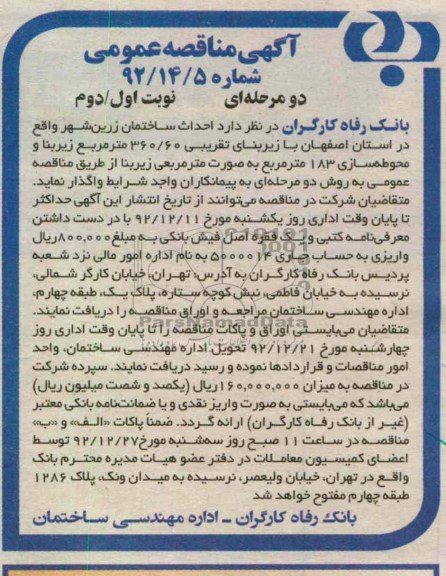 آگهی مناقصه عمومی
شماره ۹۲/۱۴/۵
دو مرحله‌ای نوبت اول/دوم
بانک رفاه کارگران در نظر دارد احداث ساختمان زرین‌شهر واقع
در استان اصفهان با زیربنای تقریبی ۳۶۰/۶۰ مترمربع زیربنا و
محوطه‌سازی ۱۸۳ مترمربع به صورت مترمربعی زیربنا از طریق مناقصه
عمومی به روش دو مرحله‌ای به پیمانکاران واجد شرایط واگذار نماید.
متقاضیان شرکت در مناقصه می‌توانند از تاریخ انتشار این آگهی حداکثر
تا پایان وقت اداری روز یکشنبه مورخ ۹۲/۱۲/۱۱ با در دست داشتن
معرفی‌نامه کتبی و یک فقره اصل فیش بانکی به مبلغ ۸۰۰,۰۰۰ریال
واریزی به حساب جاری ۵۰۰۰۰۰۱۴ به نام اداره امور مالی نزد شعبه
پردیس بانک رفاه کارگران به آدرس: تهران، خیابان کارگر شمالی،
نرسیده به خیابان فاطمی، نبش کوچه ستاره، پلاک یک، طبقه چهارم،
اداره مهندسی ساختمان مراجعه و اوراق مناقصه را دریافت نمایند.
متقاضیان می‌بایستی اوراق و پاکات مناقصه را تا پایان وقت اداری روز
چهارشنبه مورخ ۹۲/۱۲/۲۱ تحویل اداره مهندسی ساختمان، واحد
امور مناقصات و قراردادها نموده و رسید دریافت نمایند. سپرده شرکت
در مناقصه به میزان ۱۶۰,۰۰۰,۰۰۰ریال (یکصد و شصت میلیون ریال)
می‌باشد که می‌بایستی به صورت واریز نقدی و یا ضمانت‌نامه بانکی معتبر
(غیر از بانک رفاه کارگران) ارائه گردد. ضمناً پاکات «الف» و «ب»
مناقصه در ساعت ۱۱ صبح روز سه‌شنبه مورخ ۹۲/۱۲/۲۷ توسط
اعضای کمیسیون معاملات در دفتر عضو هیات مدیره محترم بانک
واقع در تهران، خیابان ولیعصر، نرسیده به میدان ونک، پلاک ۱۲۸۶
طبقه چهارم مفتوح خواهد شد
بانک رفاه کارگران ـ اداره مهندسی ساختمان
ParsNamadData